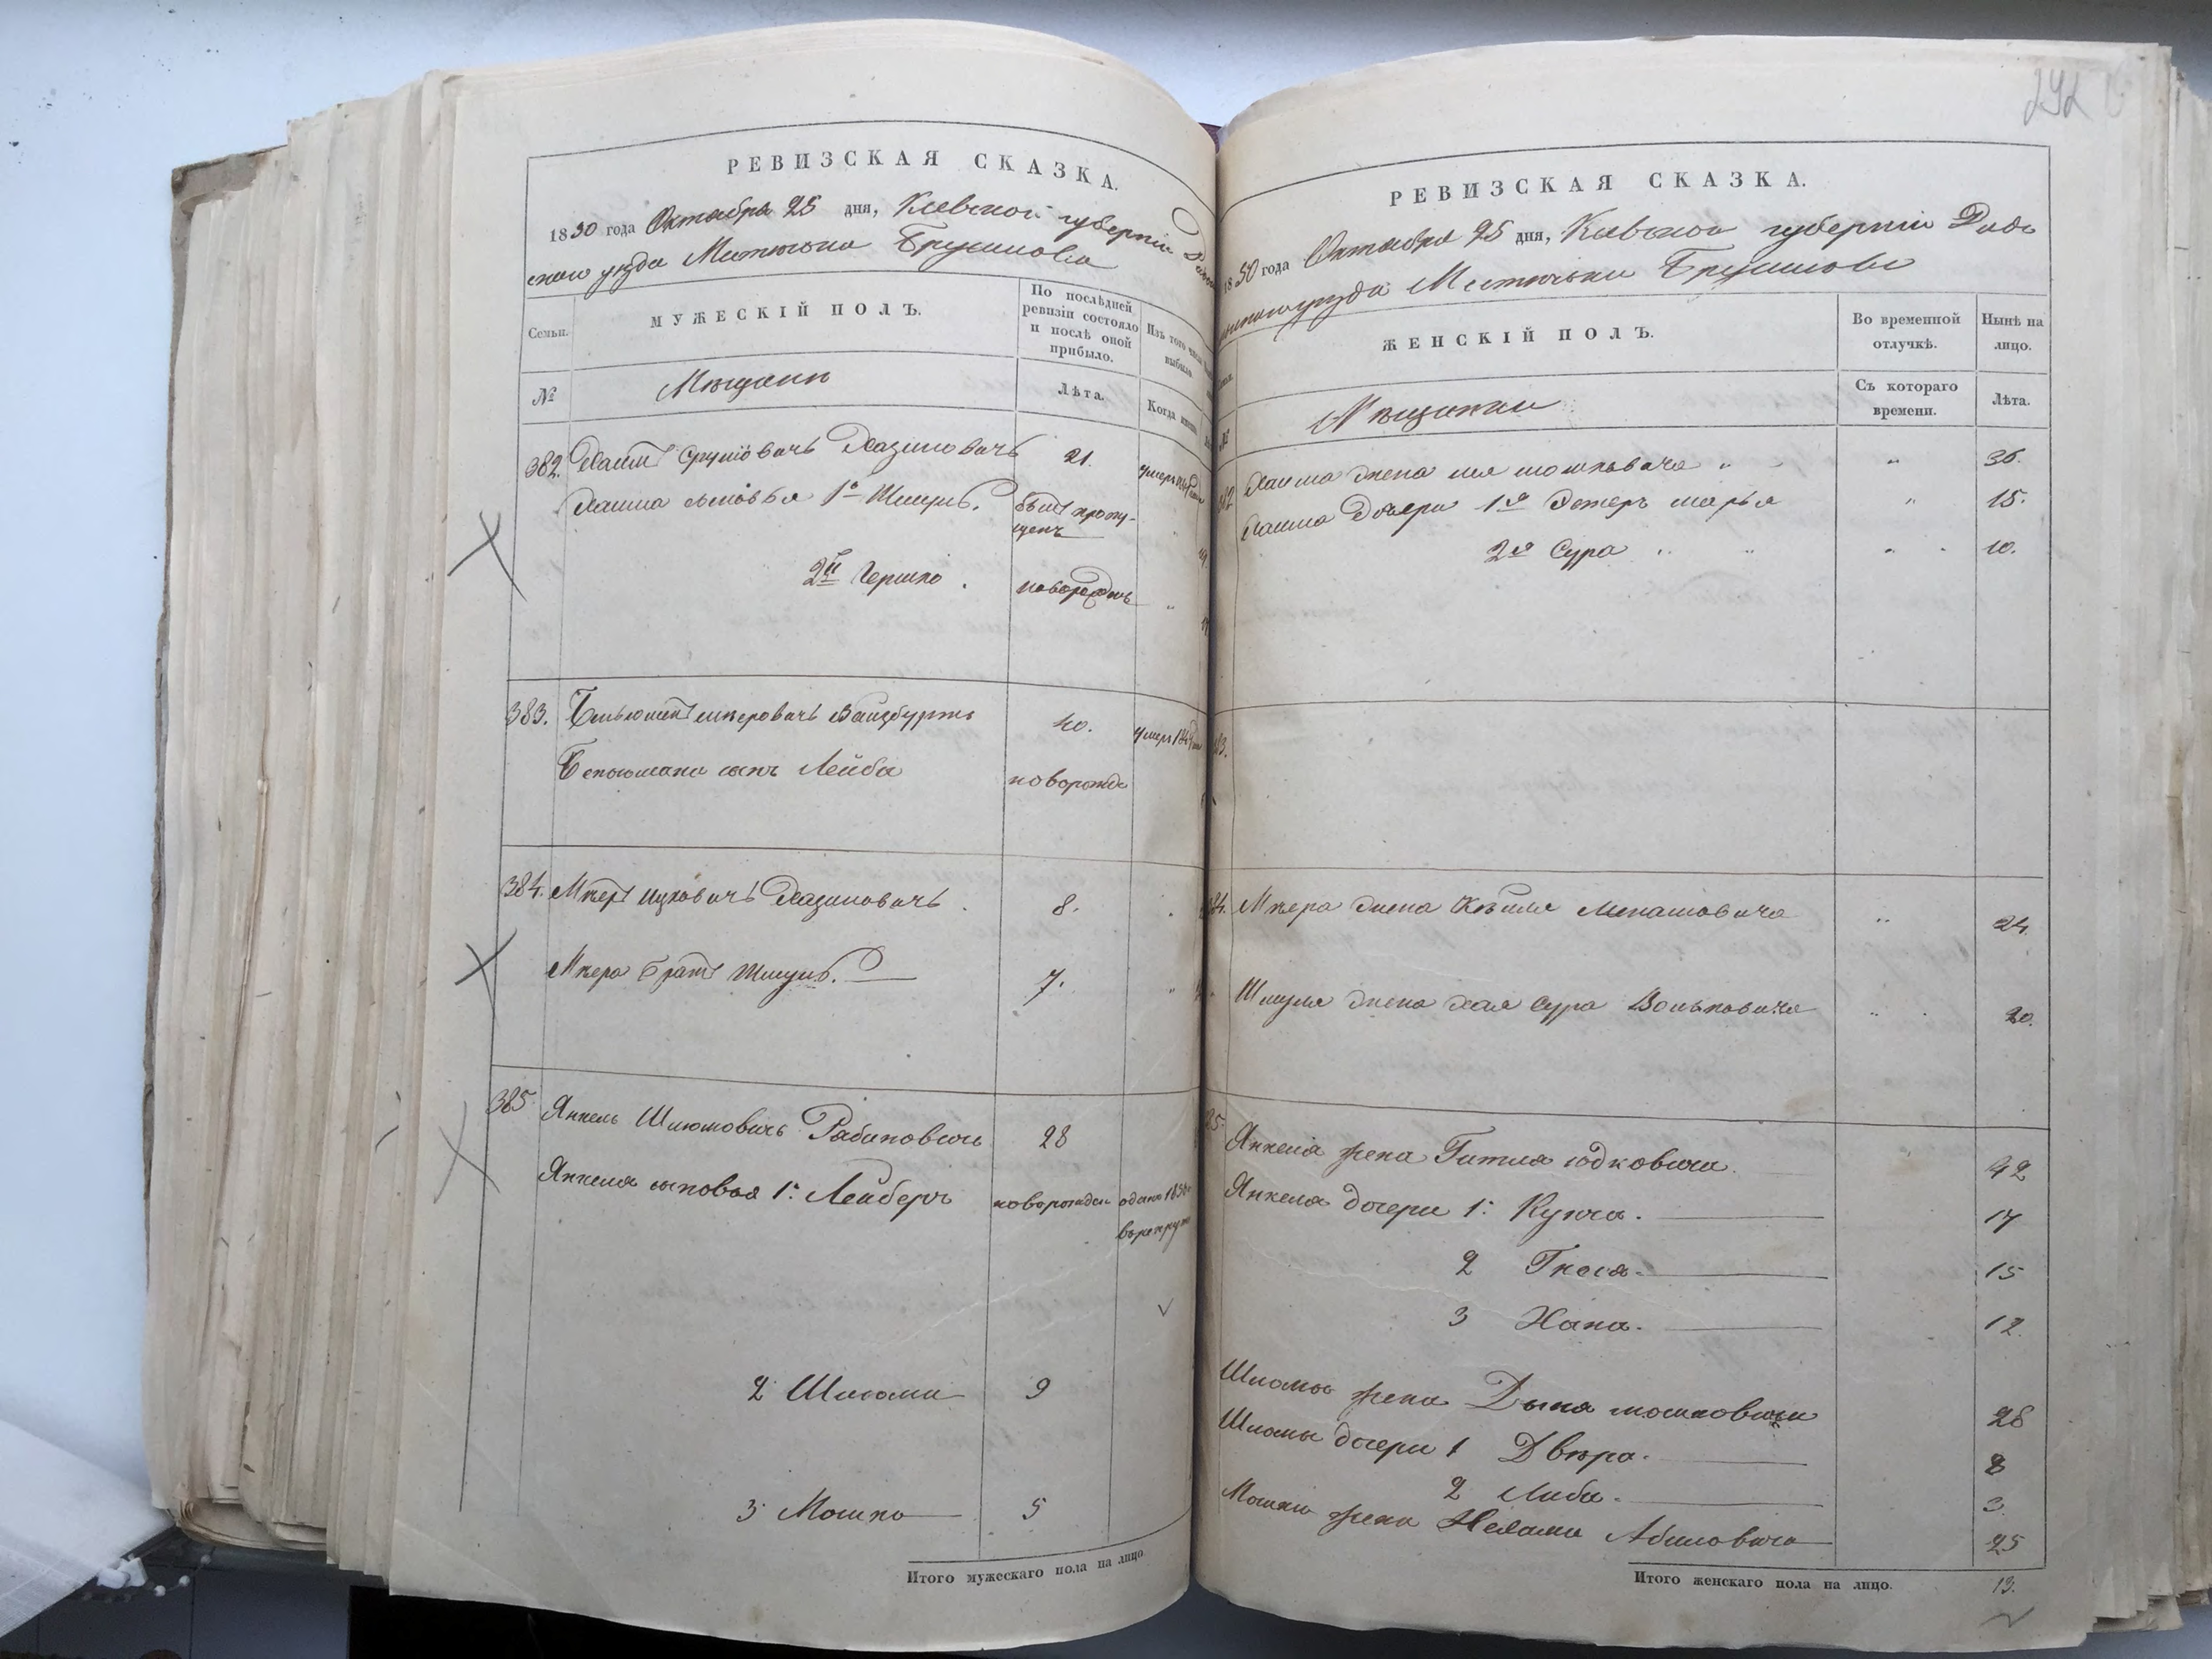 РЕВИЗСКАЯ СКАЗКА.
1850 года Октября 25 дня, Киевской губернии Радомы
скаго уезда Местечка Брусилова
Семьи.
МУЖЕСКІЙ ПОЛЪ.
По послѣдней ревизіи состояло и послѣ оной прибыло.
Изъ того числа выбыло.
№
Мѣщане
Лѣта.
Когда именно
382. Хаимъ Сруліовичъ Хазиновичъ 21. умеръ
Хаима сыновья 1й Шмуль. былъ пропу-
щенъ
2й Гершко. новорожденъ
383. Беньюминъ Мееровичъ Вайцбургъ 40. умеръ
Беньюмина сынъ Лейба новорожде
384. Мееръ Ицковичъ Хазиновичъ. 8.
Меера братъ Шмуль. 7.
385. Янкель Шлюмовичъ Рабиновичъ 28
Янкеля сыновья 1. Лейберъ новорожден отданъ 1850
въ рекруты
2 Шлюма 9
3 Мошко 5
Итого мужескаго пола на лицо
292
РЕВИЗСКАЯ СКАЗКА.
1850 года Октября 25 дня, Киевской губерніи Радо
мысльскаго уѣзда Местечка Брусилова
ЖЕНСКІЙ ПОЛЪ.
Во временной отлучкѣ.
Нынѣ на лицо.
№
Мѣщанки
Съ котораго времени.
Лѣта.
382 Хаима жена Мошковичева 36.
Хаима дочери 1я Эстеръ Марья 15.
2я Сура 10.
383.
384. Меера жена Менашовича 24.
Шмуля жена Хая Сура Вольковича 20.
385. Янкеля жена Гитля Юдковича. 42
Янкеля дочери 1. Кунча. 17
2 Гнеся. 15
3 Хана. 12.
Шломы жена Дына Мошковича 28
Шломы дочери 1 Двѣра. 8
2 Либа. 3
Мошки жена Нехама Абиловича 25
Итого женскаго пола на лицо. 13.